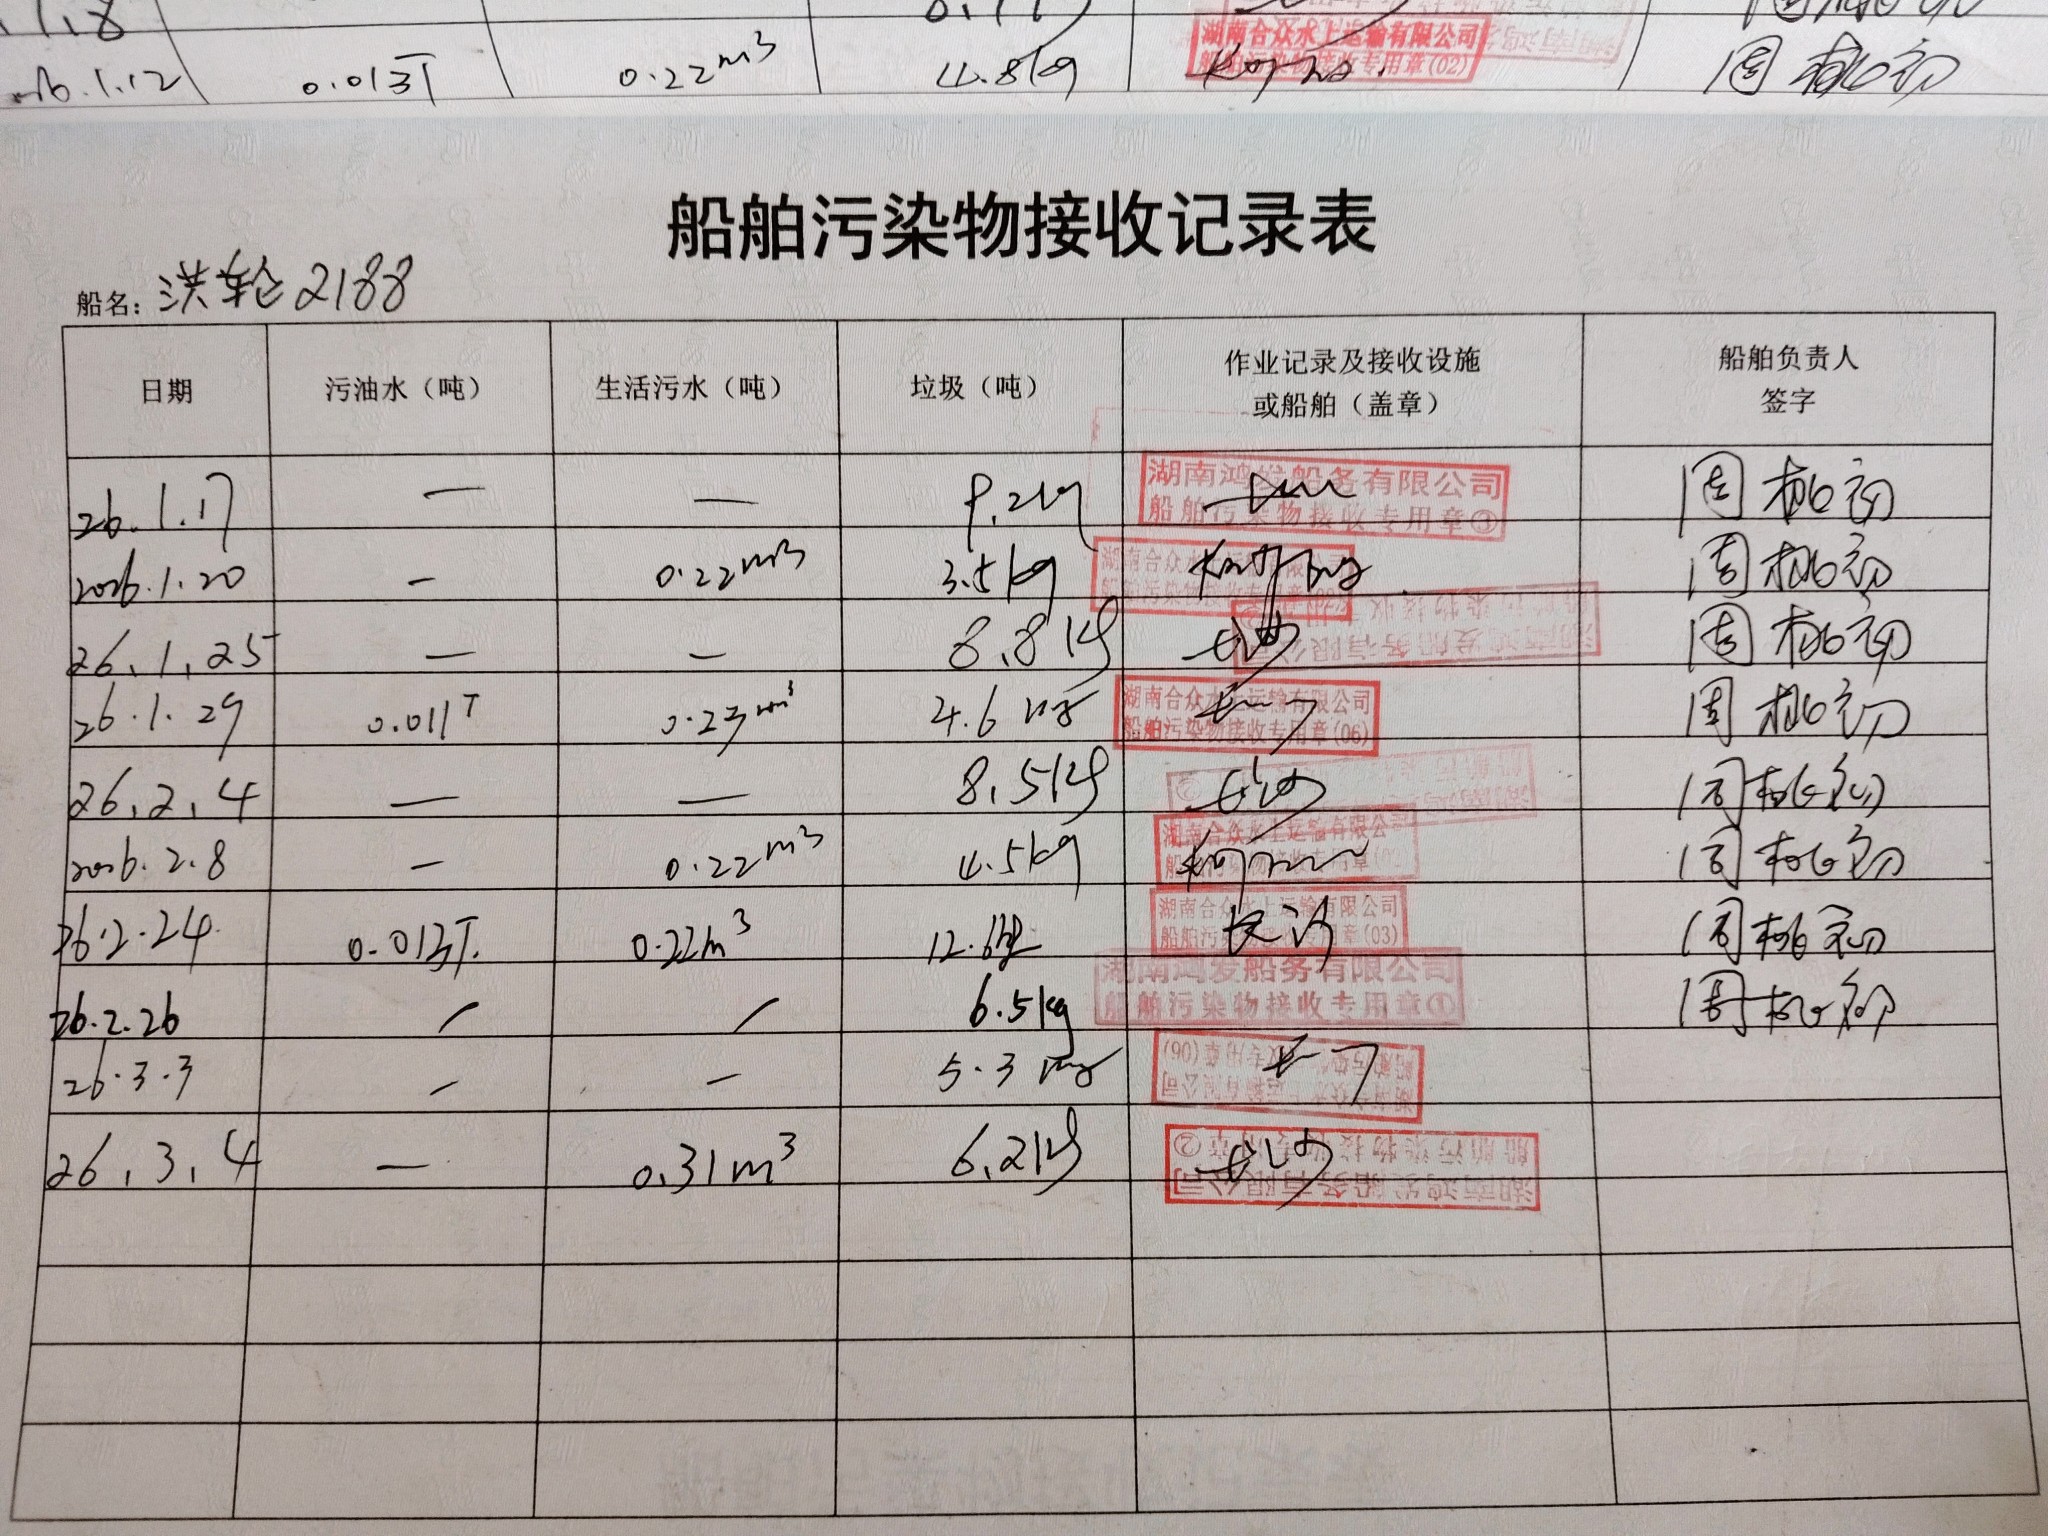 1.8
26.1.12 0.013T 0.22m³ 4.8kg 湖南合众水上运输有限公司 周桃初
船舶污染物接收专用章(02)
船舶污染物接收记录表
船名: 洪轮2188
日期 污油水（吨） 生活污水（吨） 垃圾（吨） 作业记录及接收设施或船舶（盖章） 船舶负责人签字
26.1.17 — — 9.2kg 湖南鸿发船务有限公司 周桃初
船舶污染物接收专用章①
2026.1.20 — 0.22m³ 3.5kg 湖南合众水上运输有限公司 周桃初
船舶污染物接收专用章
26.1.25 — — 8.8kg 长沙 湖南鸿发船务有限公司 周桃初
船舶污染物接收专用章②
26.1.29 0.011T 0.23m³ 4.6kg 湖南合众水上运输有限公司 周桃初
船舶污染物接收专用章(06)
26.2.4 — — 8.5kg 长沙 周桃初
2026.2.8 — 0.22m³ 4.5kg 湖南合众水上运输有限公司 周桃初
船舶污染物接收专用章
26.2.24 0.013T. 0.22m³ 12.6kg 长沙 湖南合众水上运输有限公司 周桃初
船舶污染物接收专用章(03)
26.2.26 / / 6.5kg 湖南鸿发船务有限公司 周桃初
船舶污染物接收专用章①
26.3.3 — — 5.3kg 湖南合众水上运输有限公司
船舶污染物接收专用章(06)
26.3.4 — 0.31m³ 6.2kg 长沙 湖南鸿发船务有限公司
船舶污染物接收专用章②